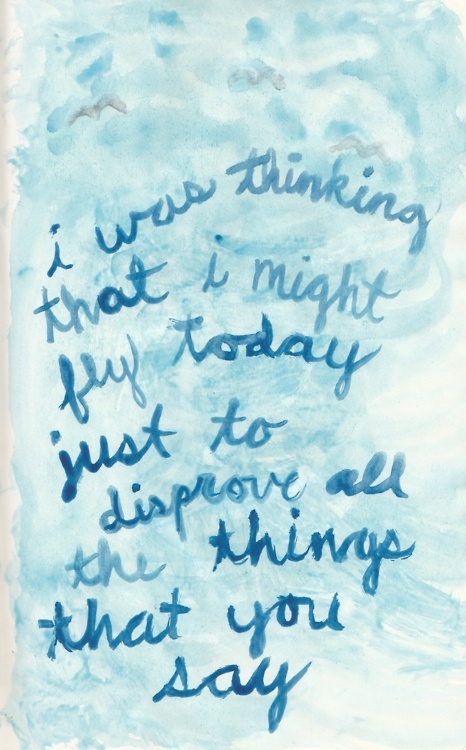 i was thinking
that i might
fly today
just to
disprove all
the things
that you
say